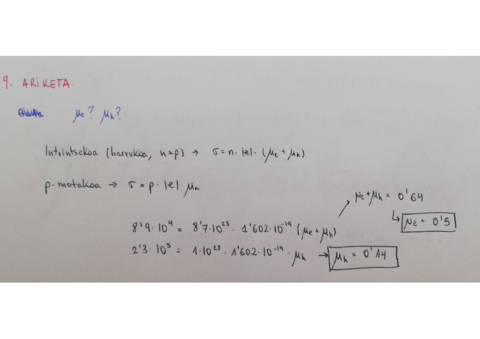 9. ARIKETA
μe? μh?
Intrintsekoa (barrukoa, n=p) → σ = n·|e|·(μe + μh)
p-motakoa → σ = p·|e| μh
μe+μh = 0'64
↳ μe = 0'5
8'9·10⁴ = 8'7·10²³ · 1'602·10⁻¹⁹ (μe+μh)
2'3·10⁵ = 1·10²⁵ · 1'602·10⁻¹⁹ · μh → μh = 0'14